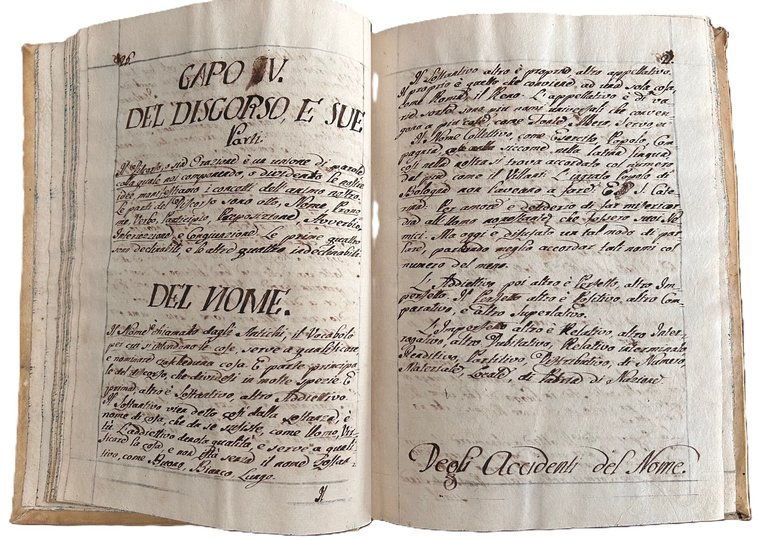 26.
CAPO IV.
DEL DISCORSO, E SUE
Parti.
Il Discorso, o sia Orazione è un unione di parole
colle quali noi componendo, e dividendo le nostre
idee, manifestiamo i concetti dell' animo nostro.
Le parti del Discorso sono otto, Nome, Prono-
me Verbo, Participio, Preposizione, Avverbio,
Interiezione, e Congiunzione. Le prime quattro
sono declinabili, e le altre quattro indeclinabili.
DEL NOME.
Il Nome chiamato dagli Antichi, il Vocabolo
per cui si intendono le cose, serve a qualificare,
e nominare ciascheduna cosa. È parte principa-
le del discorso, che dividesi in molte spezie. E
prima altro è Sostantivo, altro Addiettivo.
Il Sostantivo vien detto così dalla sostanza, è
nome di cosa, che da se sussiste, come Uomo, Vir-
tù. L'addiettivo denota qualità, e serve a quali-
ficare la cosa e non istà senza il nome Sostan-
tivo, come Buono, Bianco, Lungo.
Il
Il Sostantivo altro è proprio, altro appellativo.
Il proprio è quello che conviene ad una sola cosa,
come Roma, il Reno. L'appellativo è di va-
rie sorta, sono più nomi universali che conven-
gono a più cose, come Fonte, Albero, Servo &c.
Il Nome Collettivo, come Esercito, Popolo, Com-
pagnia, siccome nella latina lingua,
così nella nostra si trova accordato col numero
del più come il Villani: L'ingrato Popolo di
Bologna non l'aveano a fare. E S. Cate-
rina: Per amore e desiderio di far misericordia
all' Uomo nonostante che fossero suoi Ne-
mici. Ma oggi è disusato un tal modo di par-
lare, parendo meglio accordar tali nomi col
numero del meno.
L'Addiettivo poi altro è Perfetto, altro Im-
perfetto. Il Perfetto altro è Positivo, altro Com-
parativo, e altro Superlativo.
L'Imperfetto altro è Relativo, altro Inter-
rogativo, altro Dubitativo, Relativo interminato,
Renditivo, Partitivo, Distributivo, di Numero,
Materiale, Locale, di Patria, di Nazione.
Degli Accidenti del Nome.